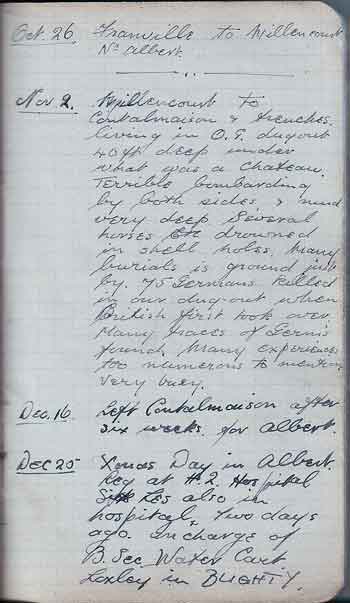 Oct. 26 Franville to Millencourt
Nr Albert.
Nov 2. Millencourt to
Contalmaison & trenches.
living in O.G. dugout
40ft deep under
what was a Chateau.
Terrible bombarding
by both sides, & mud
very deep Several
horses drowned
in shell holes. Many
burials is ground just
by. 75 Germans killed
in our dug-out when
British first took over.
Many traces of Germs
found. Many experiences
too numerous to mention
very busy.
Dec. 16 Left Contalmaison after
six weeks. for Albert.
DEC 25 Xmas Day in Albert.
Reg at H.2. Hospital
Les also in
hospital, two days
ago. Incharge of
B. Sec Water Cart
Loxley in BLIGHTY.